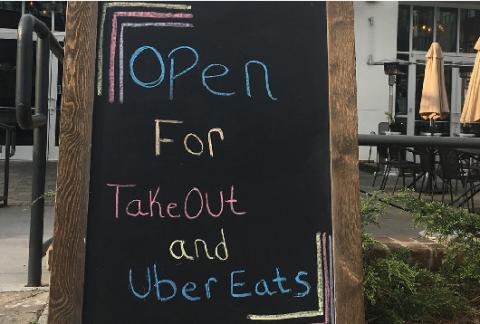 Open
For
TakeOut
and
Uber Eats